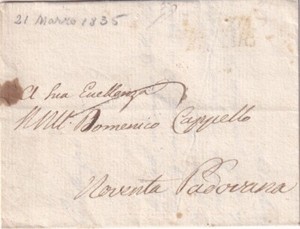 21 Marzo 1835
A Sua Eccellenza
Domenico Cappello
Noventa Padovana